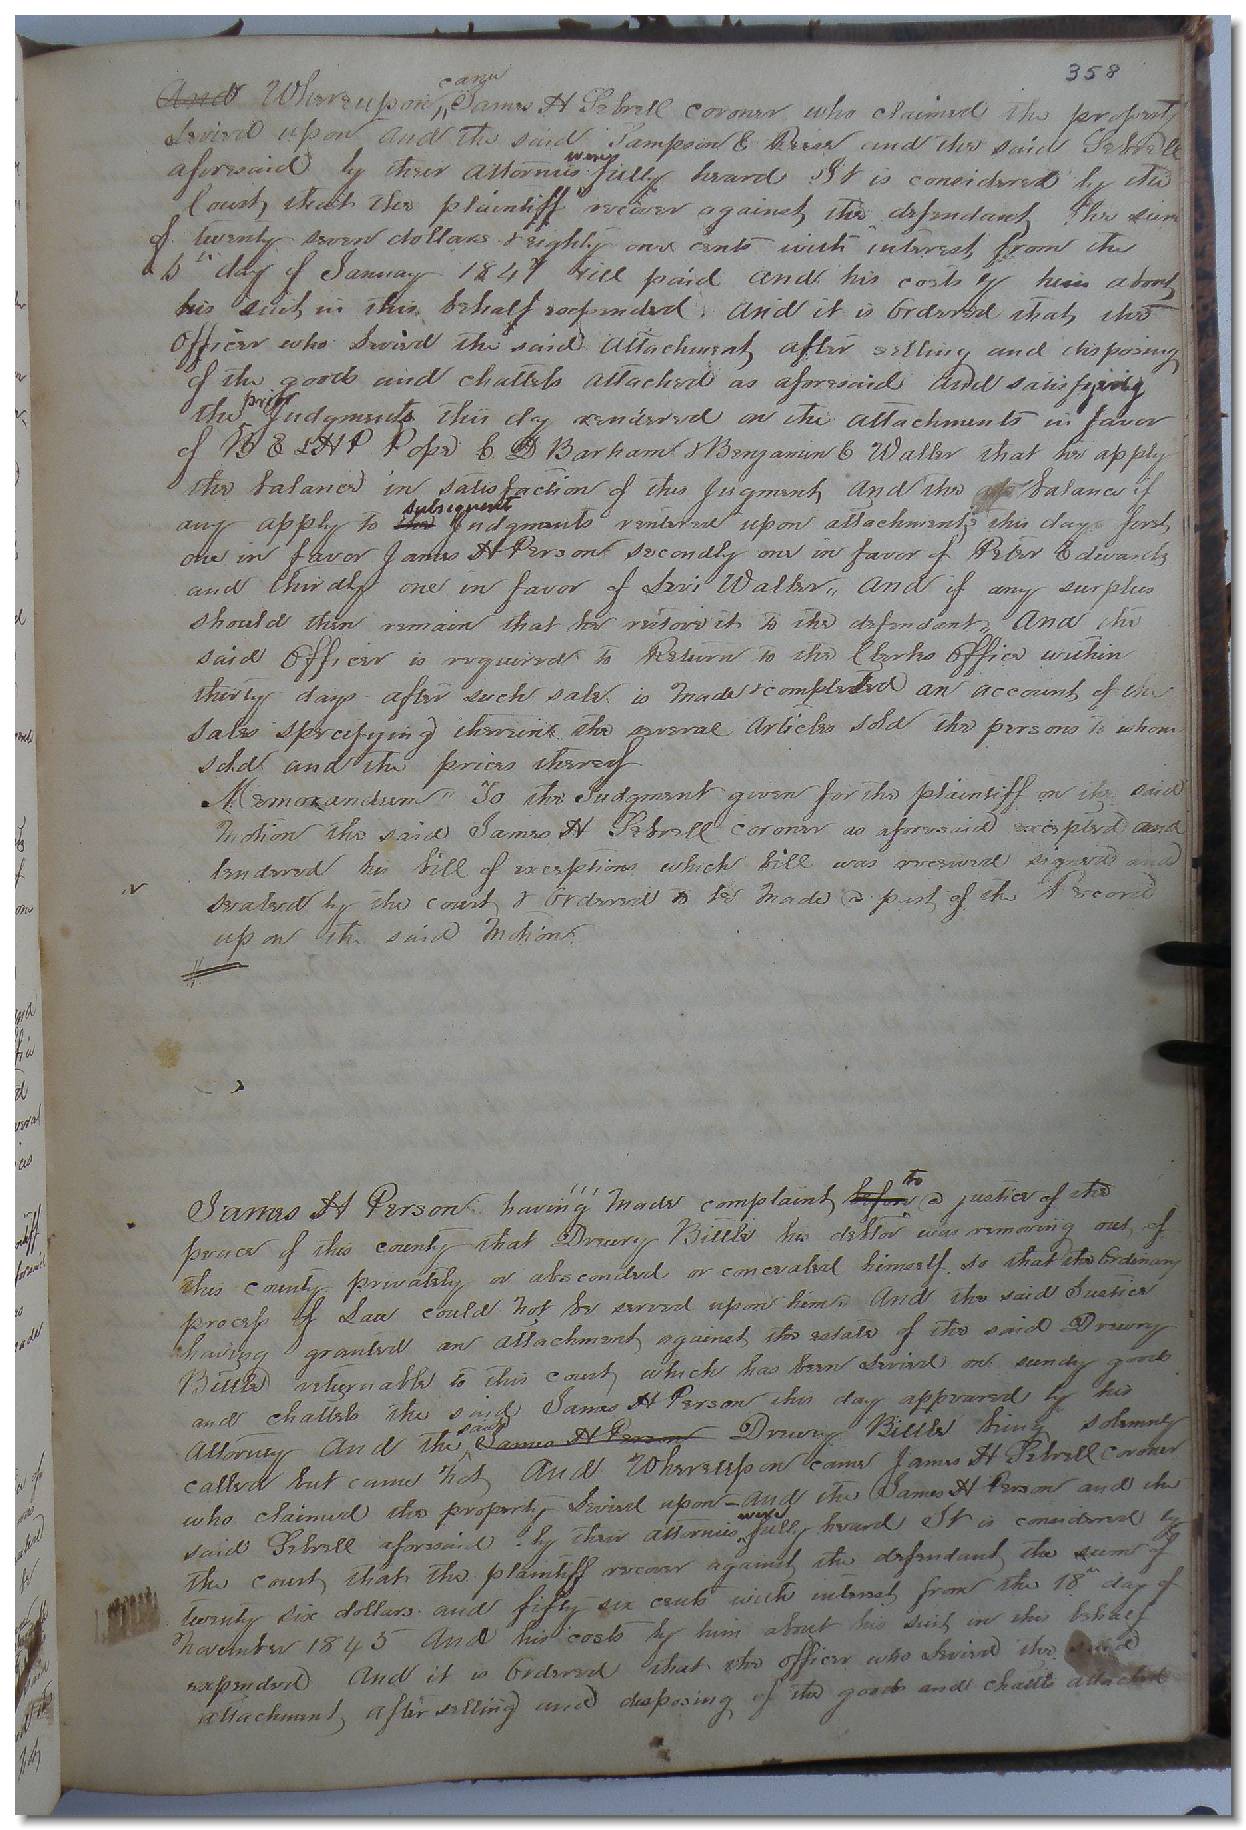 358
And Whereupon came James H Sebrell coroner who claimed the property
levied upon and the said Sampson C Reese and the said Sebrell
aforesaid by their attornies were fully heard It is considered by the
Court, that the plaintiff recover against the defendant, the sum
of twenty seven dollars & eighty one cents with interest from the
day of January 1847 till paid and his costs by him about
his suit in this behalf expended. And it is Ordered that, the
Officer who levied the said attachment, after selling and disposing
of the goods and chattels attached as aforesaid and satisfying
the prior Judgments this day rendered on the attachments in favor
of B & H P Pope C D Barham & Benjamin C Waller that he apply
the balance in satisfaction of this Jugment, and the balance if
any apply to the subsequent Judgments rendered upon attachments this day first,
one in favor James H Person secondly one in favor of Peter Edwards
and thirdly one in favor of Levi Waller,, and if any surplus
should then remain that he restore it to the defendant,, And the
said Officer is required to Return to the Clerks Office within
thirty days after such sale is made & completed an account of the
sales specifying therein the several articles sold the persons to whom
sold and the prices thereof
Memorandum " To the Judgment given for the plaintiff on the said
Motion the said James H Sebrell coroner as aforesaid excepted and
tendered his bill of exceptions which bill was received signed and
sealed by the court & Ordered to be made a part of the Record
upon the said Motion.
James H Person having made complaint before to a justice of the
peace of this county that Drewry Bittle his debtor was removing out of
this county privately or absconded or concealed himself so that the Ordinary
process of Law could not be served upon him. And the said Justice
having granted an attachment against the estate of the said Drewry
Bittle returnable to this court, which has been levied on sundy goods
and chattels the said James H Person this day appeared by his
attorney And the said James H Person Drewry Bittle being solemnly
called but came not, And Whereupon came James H Sebrell coroner
who claimed the property levied upon – and the James H Person and the
said Sebrell aforesaid by their attornies were fully heard It is considered by
the court, that the plaintiff recover against, the defendant, the sum of
twenty six dollars and fifty six cents with interest from the 18th day of
November 1845 And his costs by him about his suit in this behalf
expended And it is Ordered that the officer who levied the said
attachment, after selling and disposing of the goods and chattels attached